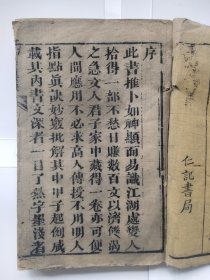 序
此書推卜如神顯而易識江湖處變人
拾得一部不愁日賺數百文以濟餬䭃
之急文人君子家中藏得一卷亦可便
人間應用不必求高人傳授不用明人
指點真訣妙竅批解其中甲子起創咸
載其內書文深者一目了然字墨淺者
仁記書局